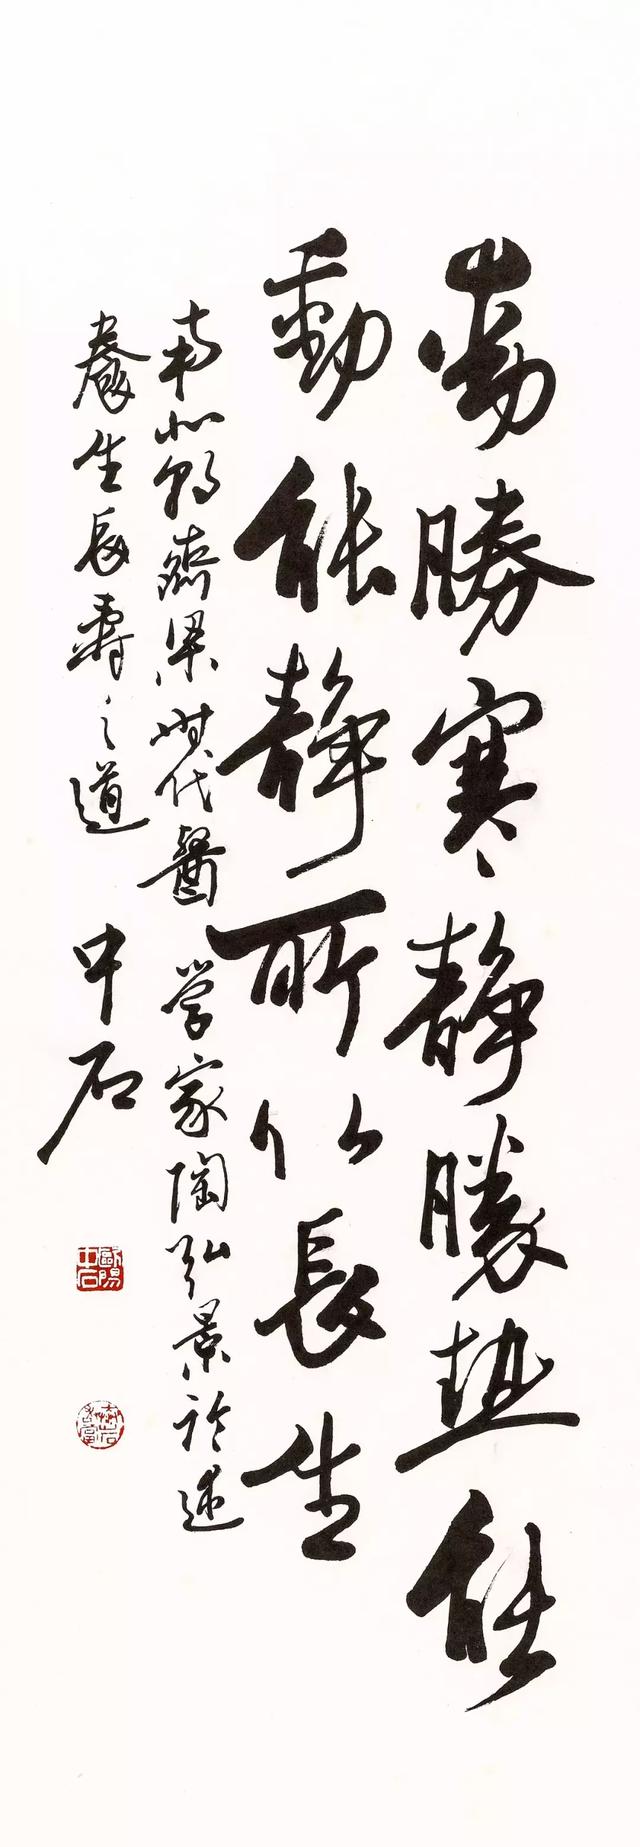 動勝寒靜勝熱能
動能靜所以長生
南北朝齊梁時代醫學家陶弘景論述
養生長壽之道 中石
歐陽中石